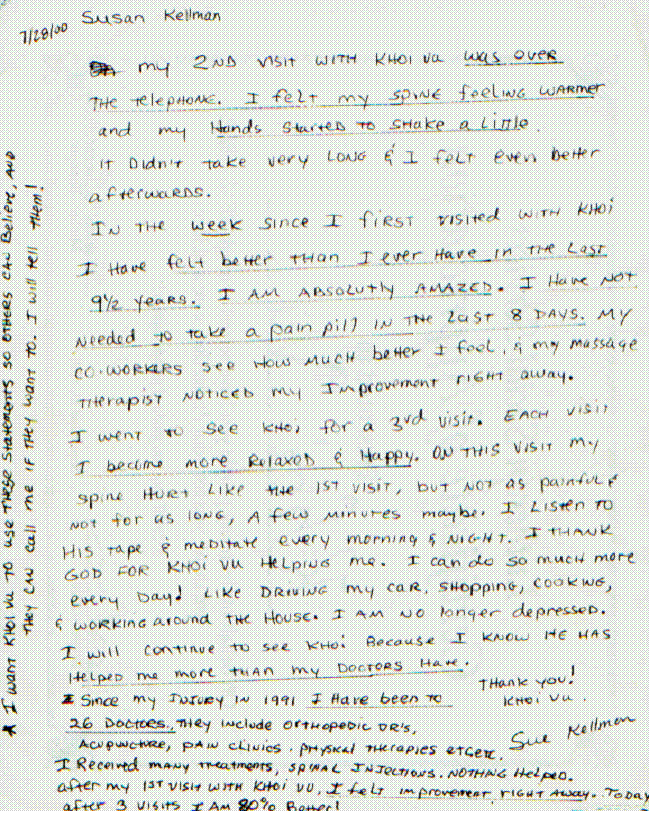 Susan Kellman
7/28/00
my 2ND VISIT WITH KHOI VU was over
THE telepHONE. I felt my SPINE feeling WARMER
and my Hands Started TO SHAKE a little.
IT DIDN'T TAKE very LONG & I felt even better
afterwards.
IN THE week since I first visited with KHOI
I Have felt better than I ever Have in the Last
9½ years. I AM ABSOLUTLY AMAZED. I Have NOT
Needed to take a pain pill IN THE Last 8 DAYS. My
CO-WORKERS see How MUCH better I feel, & my massage
THerapist NOTICED my Improvement right away.
I went to see Khoi for a 3rd visit. EACH VISIT
I become more RelaxeD & Happy. ON THIS VISIT my
spine Hurt Like the 1ST VISIT, but NOT as painful &
NOT for as long, A few minutes maybe. I Listen to
His tape & meditate every morning & NIGHT. I THANK
GOD FOR KHOI VU HELPING me. I can do so much more
every Day! Like DRIVING my CAR, SHOPPING, COOKING,
& WORKING around THE HOUSE. I AM NO longer depressed.
I will continue to see KHOI Because I KNOW HE HAS
Helped me more than my DOCTORS Have.
THANK you!
KHOI VU.
Sue Kellman
Since my INJURY IN 1991 I Have been to
26 DOCTORS, THEY INCLUDE ORTHOPEDIC DR'S,
ACUPUNCTURE, PAIN CLINICS. PHYSICAL THERAPIES
I Received many Treatments, SPINAL INJECTIONS. NOTHING Helped.
after my 1ST VISIT WITH KHOI VU, I felt improvement right away. Today
after 3 VISITS I AM 80% Better!
* I WANT KHOI VU TO use THese Statements so OTHERS CAN Believe, AND
THey CAN call me if THEY WANT TO. I will tell them!